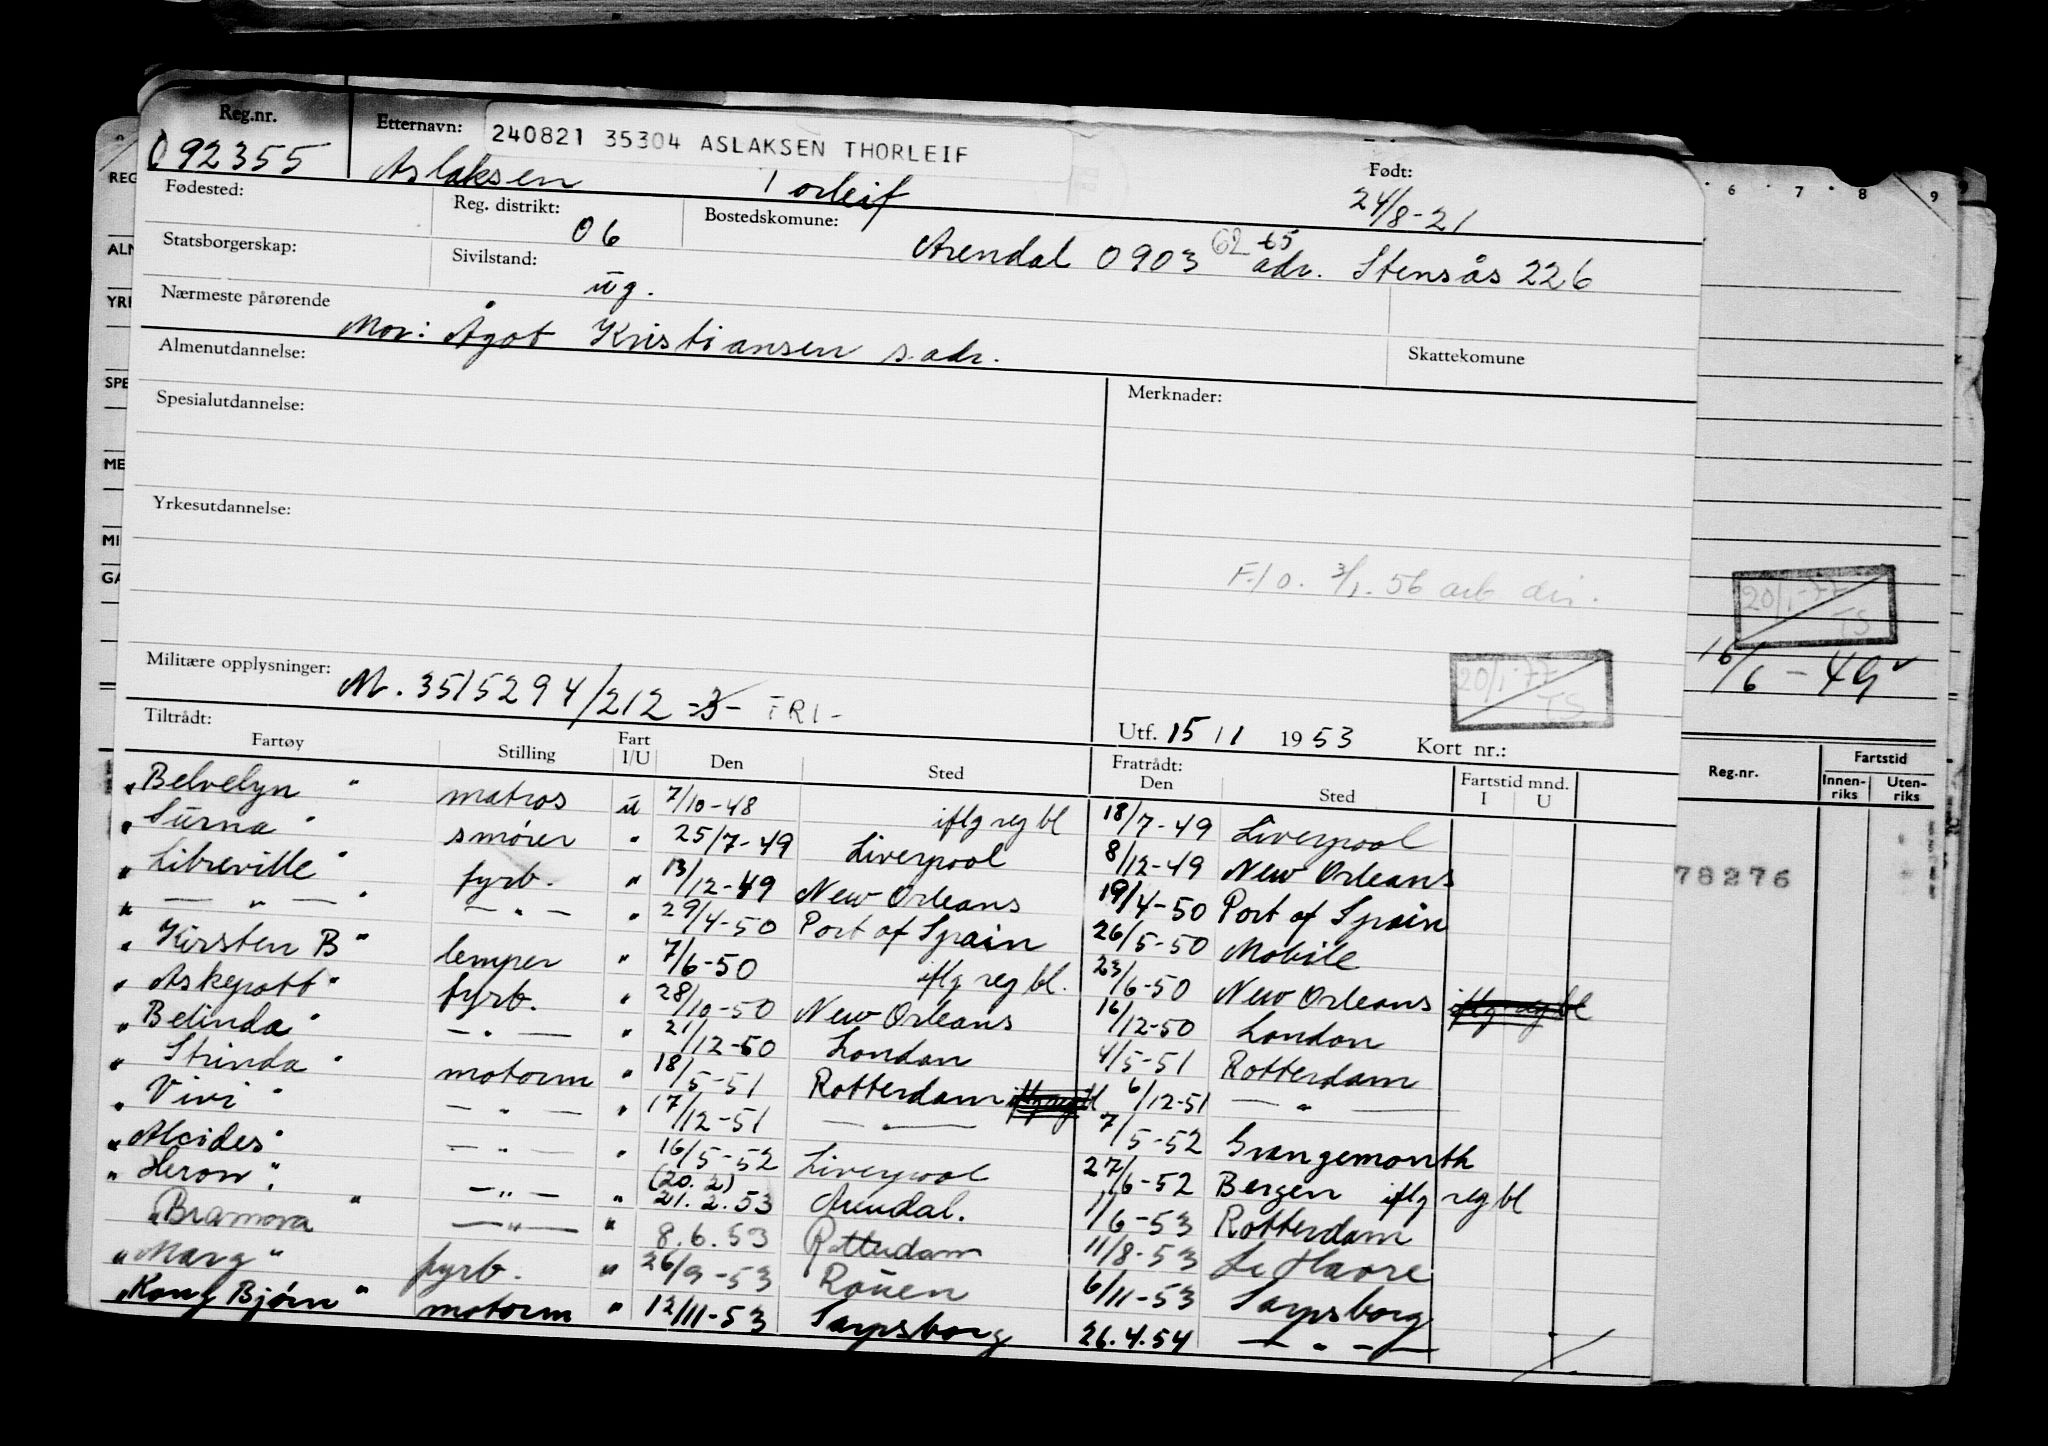 Reg.nr. Etternavn: 240821 35304 ASLAKSEN THORLEIF Født:
092355 Aslaksen Torleif 24/8-21
Fødested: Reg. distrikt: 06 Bostedskomune: Arendal 0903 62 65 adr. Stensås 226
Statsborgerskap: Sivilstand: ug.
Nærmeste pårørende Mor: Ågot Kristiansen s. adr. Skattekomune
Almenutdannelse:
Spesialutdannelse: Merknader:
Yrkesutdannelse:
F.l o. 3/1. 56 arb. dir.
Militære opplysninger: M. 3515294/212 -3- FRI-
20/1-77 TS
Tiltrådt: Utf. 15/1 1953 Kort nr.:
Fartøy Stilling Fart I/U Den Sted Fratrådt: Den Sted Fartstid mnd. I U
"Belvelyn" matros u 7/10-48 iflg reg bl 18/7-49 Liverpool
"Surna" smører " 25/7-49 Liverpool 8/12-49 New Orleans
"Libreville" fyrb. " 13/12-49 New Orleans 19/4-50 Port of Spain
" — " — " — " — " 29/4-50 Port of Spain 26/5-50 Mobile
"Kirsten B" lemper " 7/6-50 iflg reg bl. 23/6-50 New Orleans
"Askepott" fyrb. " 28/10-50 New Orleans 16/12-50 London
"Belinda" — " — " 21/12-50 London 4/5-51 Rotterdam
"Strinda" motorm " 18/5-51 Rotterdam 6/12-51 — " —
"Vivi" — " — " 17/12-51 — " — 7/5-52 Grangemouth
"Alcides" — " — " 16/5-52 Liverpool 27/6-52 Bergen iflg reg bl
"Heron" — " — " (20.2) 21.2.53 Arendal. 1/6-53 Rotterdam
"Bramora" — " — " 8.6.53 Rotterdam 11/8-53 Le Havre
"Marg" fyrb. " 26/9-53 Rouen 6/11-53 Sarpsborg
"Kong Bjørn" motorm " 12/11-53 Sarpsborg 26.4.54 — " —
REG
ALM
YRK
SPE
ME
MI
GA
6 7 8 9
20/1-77 TS
16/6-49
Reg.nr. Fartstid
Innen-riks Uten-riks
78276